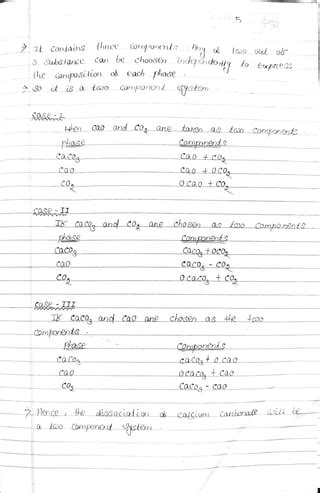 5
→ It Contains three components. Any of two out of
3 Substance can be choosen independently to express
the composition of each phase.
→ so it is a two component system.
case-I
When cao and CO2 are taken as two components
phase Components
CaCO3 Cao + CO2
Cao Cao + 0CO2
CO2 0Cao + CO2
case-II
If CaCO3 and CO2 are chosen as two Components
phase Components
CaCO3 CaCO3 + 0CO2
CaO CaCO3 - CO2
CO2 0CaCO3 + CO2
case-III
If CaCO3 and Cao are chosen as the two
Components.
Phase Components
CaCO3 CaCO3 + 0 Cao
Cao 0CaCO3 + Cao
CO2 CaCO3 - Cao
→ Hence, the dissociation of calcium Carbonate will be
a two Component System.